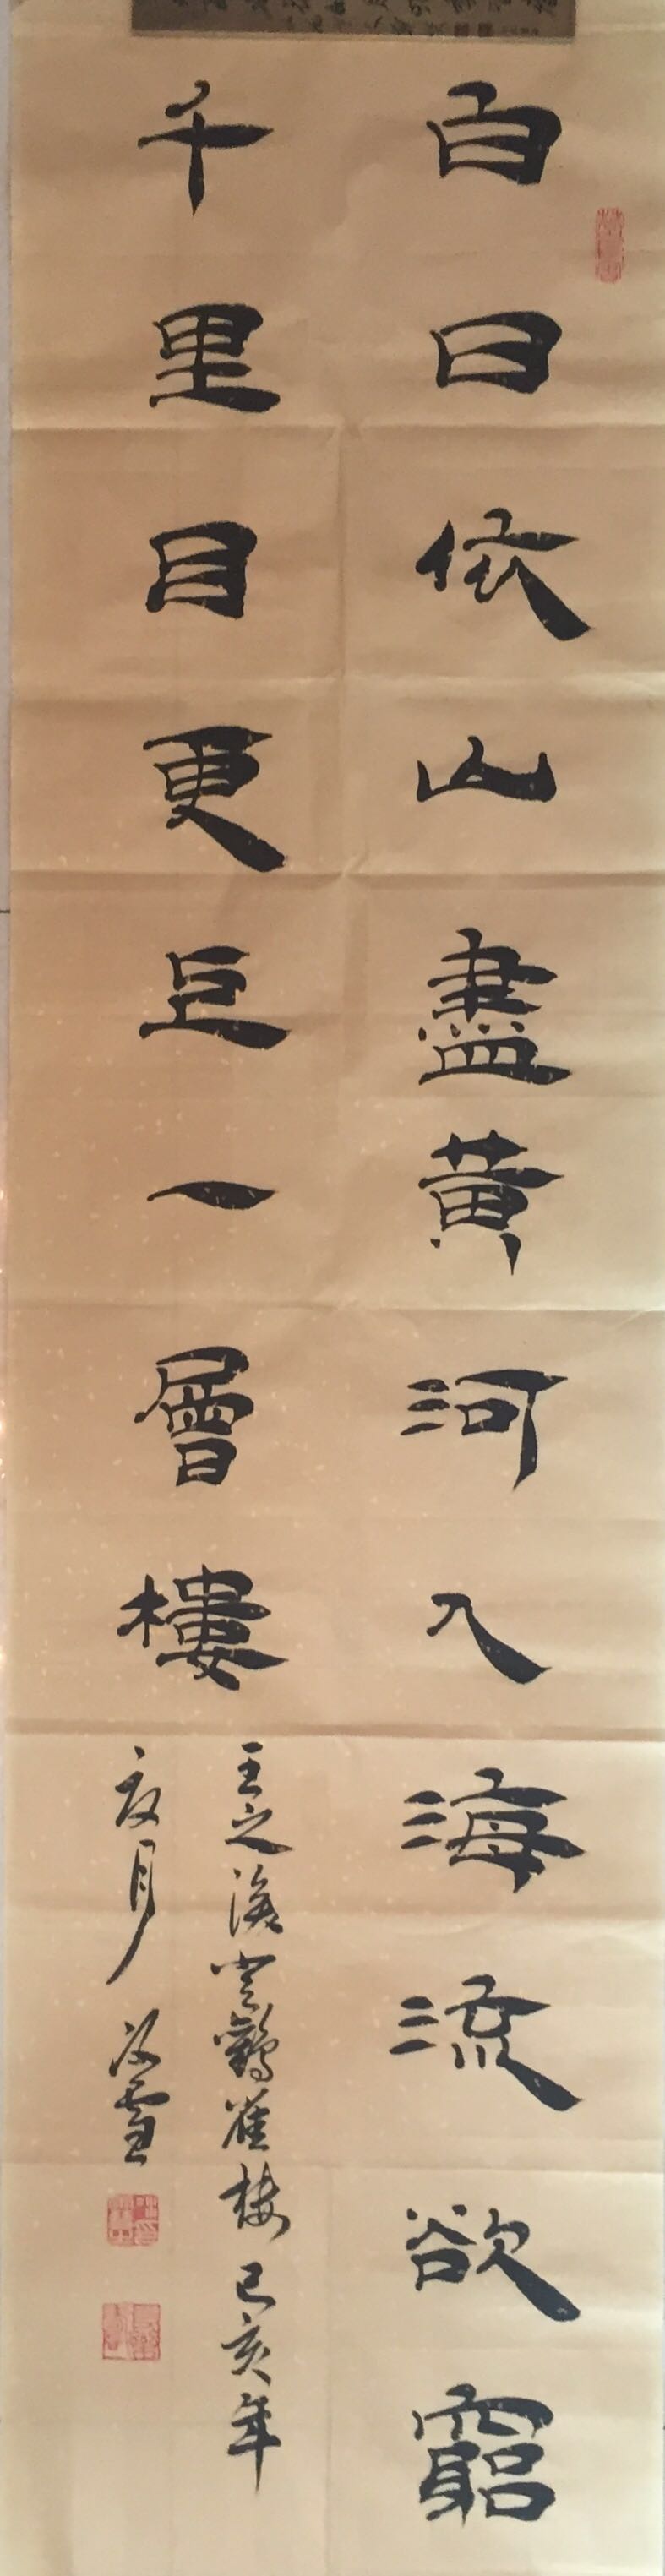 白日依山盡黃河入海流欲窮
千里目更上一層樓
王之渙登鸛雀樓己亥年
夏月 雪